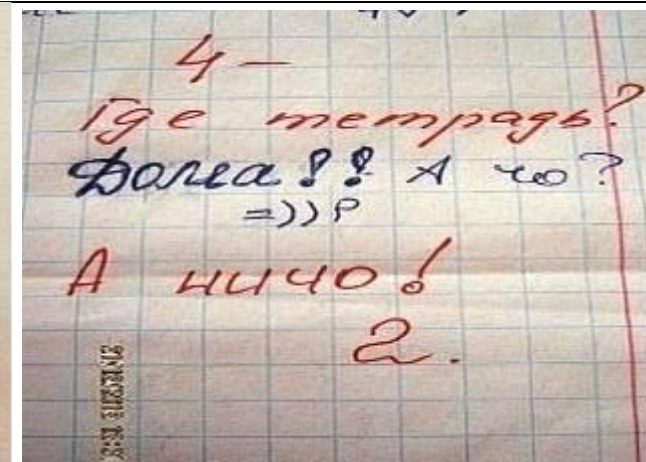 4 —
Где тетрадь?
Дома!! А чо?
=))
А ничо!
2.